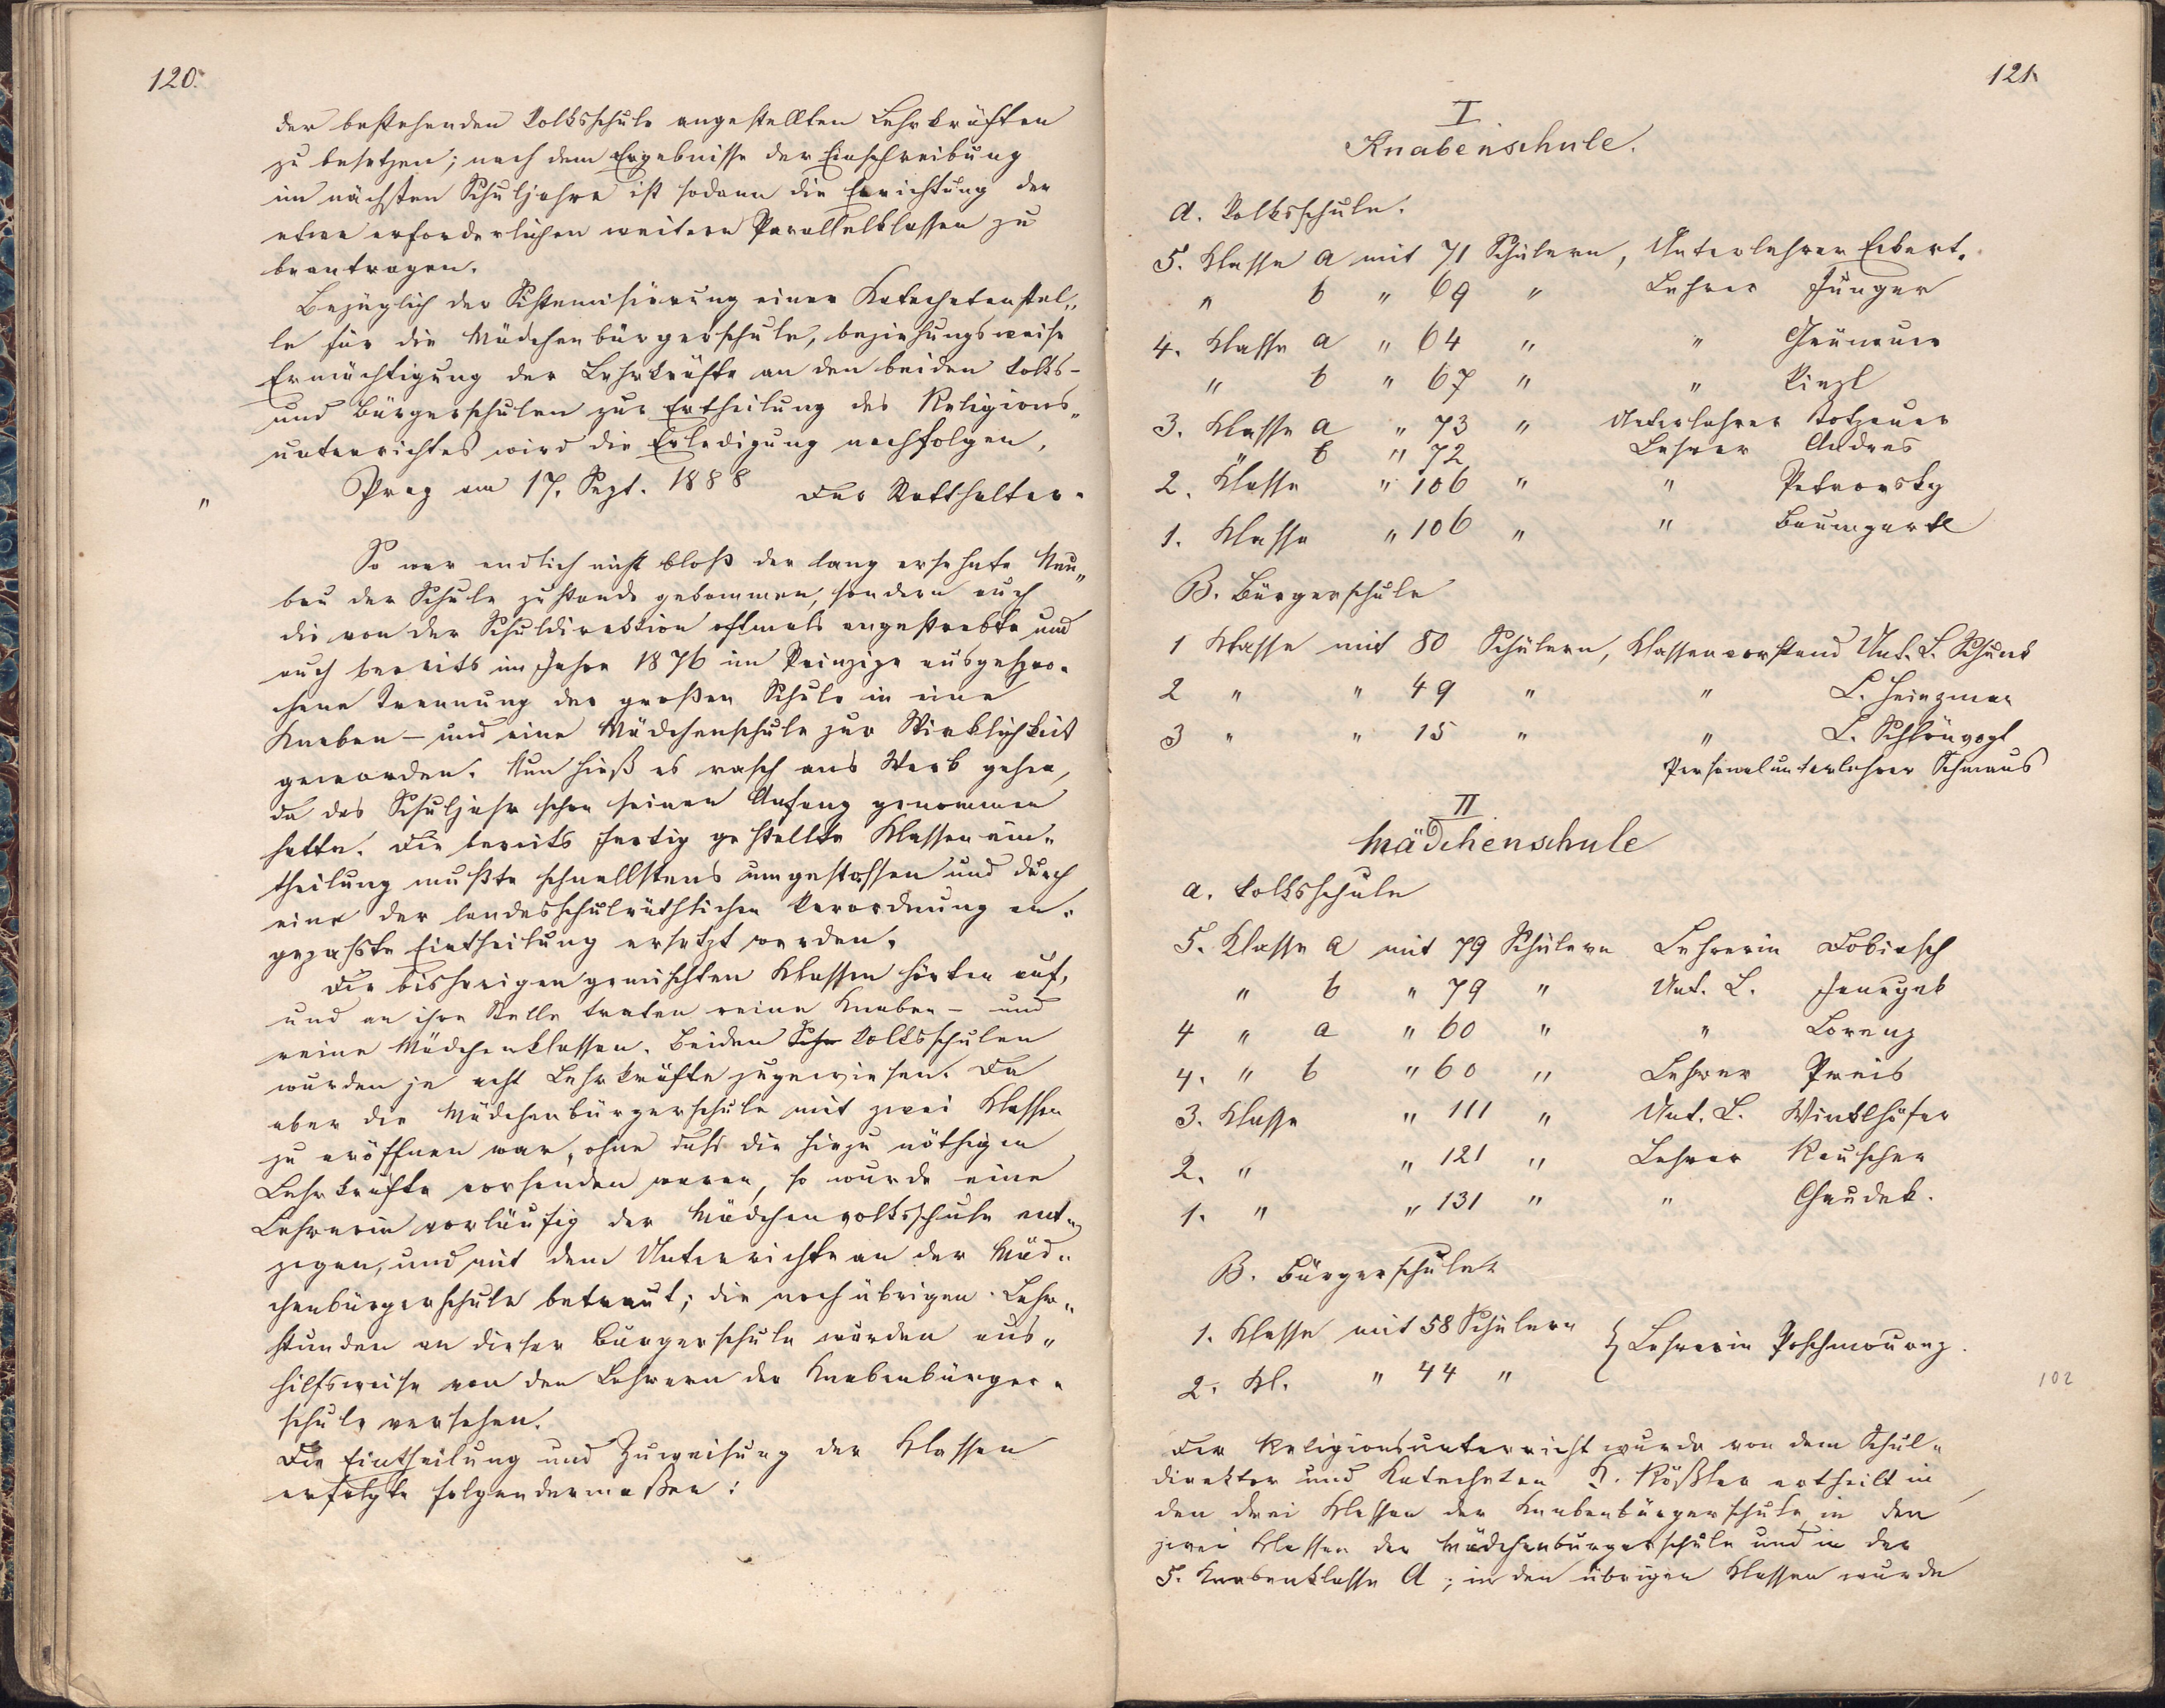 120.
der bestehenden Volksschule angestellten Lehrkräften
zu besetzen; nach dem Ergebnisse der Einschreibung
im nächsten Schuljahre ist sodann die Errichtung der
etwa erforderlichen weitern Parallelklassen zu
beantragen.
Bezüglich der Sistemisirung einer Katechetenstel„
le für die Mädchenbürgerschule, beziehungsweise
Ermächtigung der Lehrkräfte an den beiden Volks-
und Bürgerschulen zur Ertheilung des Religions„
unterrichtes wird die Erledigung nachfolgen.
" Prag am 17. Sept. 1888 Der Statthalter.
So war endlich nicht bloß der lang ersehnte Neu„
bau der Schule zustande gekommen, sondern auch
die von der Schuldirektion oftmals angestrebte und
auch bereits im Jahre 1876 im Prinzipe ausgespro„
chene Trennung der großen Schule in eine
Knaben- und eine Mädchenschule zur Wirklichkeit
geworden. Nun hieß es rasch ans Werk gehen,
da das Schuljahr schon seinen Anfang genommen
hatte. Die bereits fertig gestellte Klassenein„
theilung mußte schnellstens umgestossen und durch
eine der landesschulräthlichen Verordnung an„
gepaßte Eintheilung ersetzt werden.
Die bisherigen gemischten Klassen hörten auf,
und an ihre Stelle traten reine Knaben- und
reine Mädchenklassen. Beiden Schu Volksschulen
wurden je acht Lehrkräfte zugewiesen. Da
aber die Mädchenbürgerschule mit zwei Klassen
zu eröffnen war, ohne daß die hiezu nöthigen
Lehrkräfte vorhanden waren, so wurde eine
Lehrerin vorläufig der Mädchenvolksschule ent„
zogen, und mit dem Unterrichte an der Mäd„
chenbürgerschule betraut; die noch übrigen Lehr„
stunden an dieser Bürgerschule wurden aus„
hilfsweise von den Lehrern der Knabenbürger„
schule versehen.
Die Eintheilung und Zuweisung der Klassen
erfolgte folgendermaßen:
121.
I
Knabenschule.
A. Volksschule.
5. Klasse a mit 71 Schülern, Unterlehrer Eckert.
" b " 69 " Lehrer Junger
4. Klasse a " 64 " "
" b " 67 " " Kinzl
3. Klasse a " 73 " Unterlehrer Totzauer
" b " 72 Lehrer Andres
2. Klasse " 106 " " Petrovsky
1. Klasse " 106 " " Baumgartl
B. Bürgerschule
1 Klasse mit 80 Schülern, Klassenvorstand Unt. L. Schunk
2 " " 49 " " L. Heinzman
3 " " 15 " " L.
Personalunterlehrer Schmaus
II
Mädchenschule
a. Volksschule
5. Klasse a mit 79 Schülern Lehrerin Dobiasch
" b " 79 " Unt. L.
4 " a " 60 " " Lorenz
4. " b " 60 " Lehrer Preis
3. Klasse " 111 " Unt. L. Winklhöfer
2. " " 121 " Lehrer Reuscher
1. " " 131 " " Chaudek.
B. Bürgerschule
1. Klasse mit 58 Schülern } Lehrerin Poschmourny.
2. Kl. " 44 "
102
Der Religionsunterricht wurde von dem Schul„
direktor und Katecheten P. Rößler ertheilt in
den drei Klassen der Knabenbürgerschule, in den
zwei Klassen der Mädchenbürgerschule und in der
5. Knabenklasse A; in den übrigen Klassen wurde